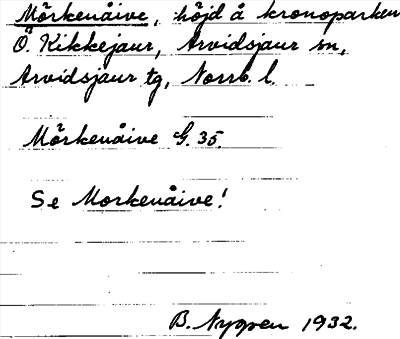 Mörkenåive, höjd å kronoparken
Ö. Kikkejaur, Arvidsjaur sn,
Arvidsjaur tg, Norrb. l.
Mörkenåive G. 35.
Se Morkenåive!
B. Nygren 1932.